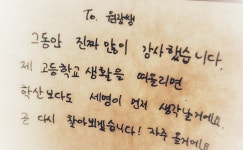 To. 원장쌤
그동안 진짜 많이 감사했습니다.
제 고등학교 생활을 떠올리면
학산보다도 세영이 먼저 생각날거에요.
곧 다시 찾아뵙겠습니다! 자주 올거에요